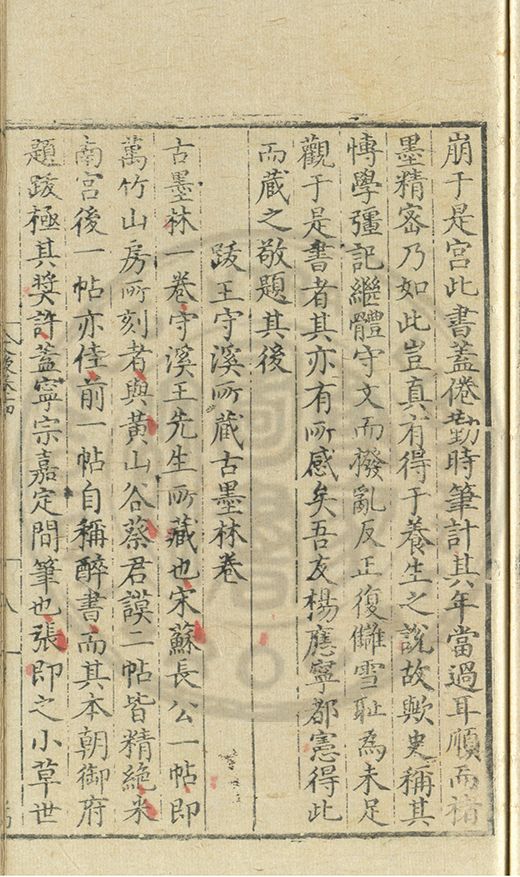 崩于是宮此書蓋倦勤時筆計其年當過耳順而楮
墨精密乃如此豈真有得于養生之說故歟史稱其
博學彊記繼體守文而撥亂反正復讎雪恥為未足
觀于是書者其亦有所感矣吾友楊應寧都憲得此
而藏之敬題其後
跋王守溪所藏古墨林卷
古墨林一卷守溪王先生所藏也宋蘇長公一帖即
萬竹山房所刻者與黃山谷蔡君謨二帖皆精絶米
南宮後一帖亦佳前一帖自稱醉書而其本朝御府
題跋極其奬許蓋寧宗嘉定間筆也張即之小草世